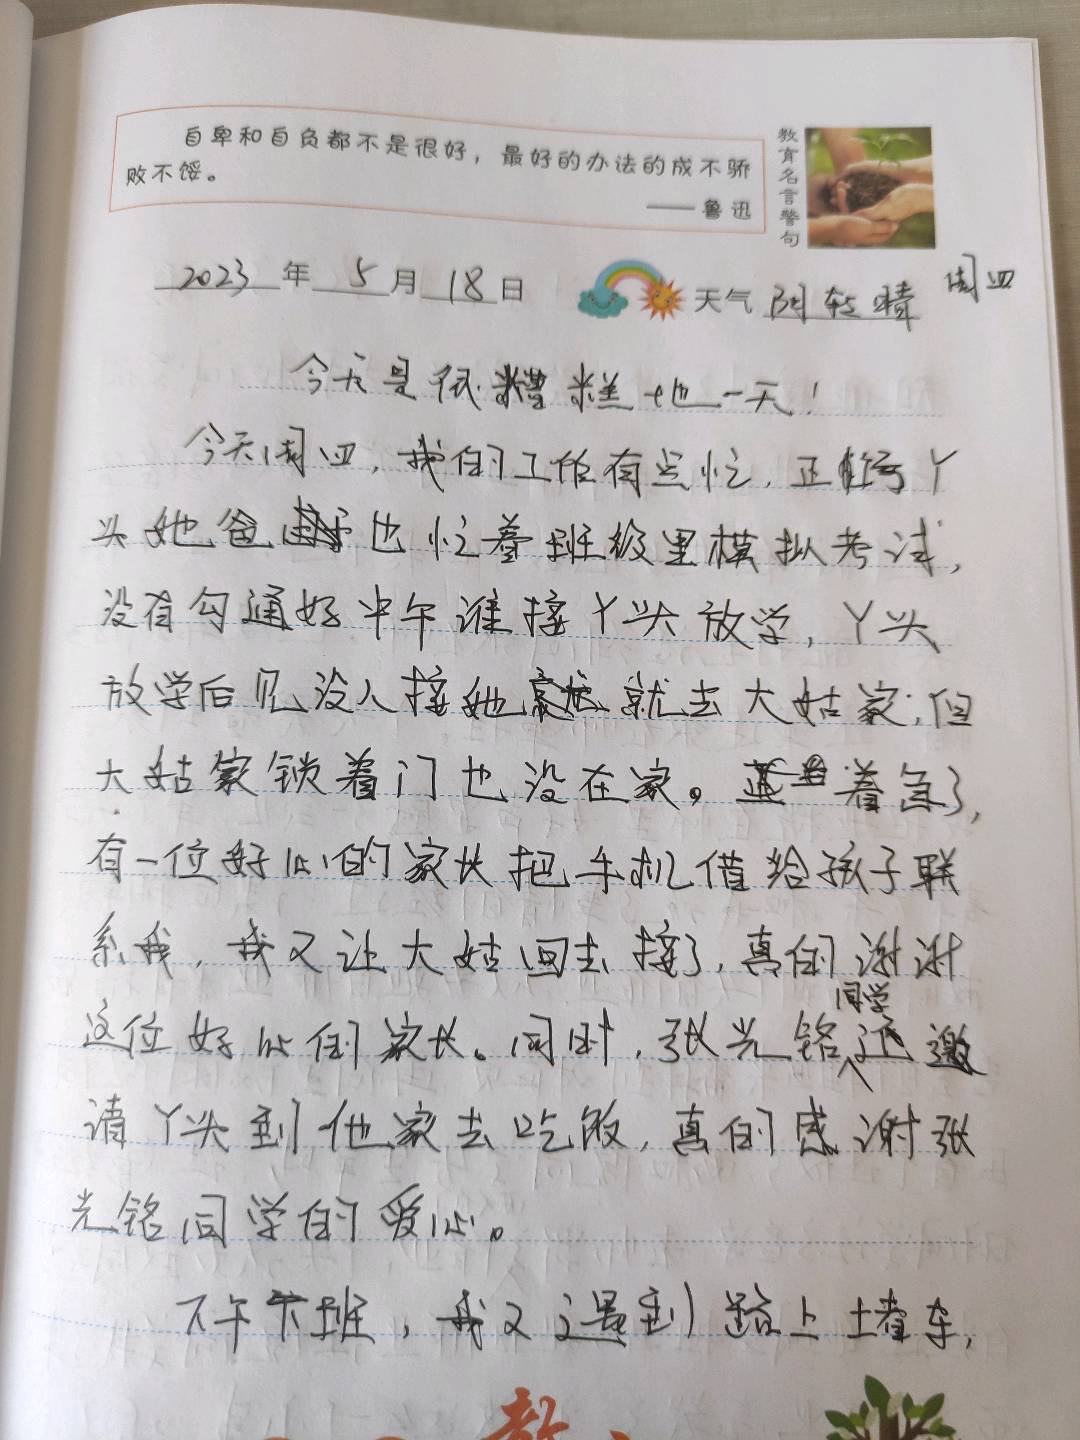 自卑和自负都不是很好，最好的办法的成不骄
败不馁。
——鲁迅
教育名言警句
2023年5月18日 天气 阴转晴 周四
今天是很糟糕地一天！
今天周四，我的工作有点忙，正好丫
头她爸也忙着班级里模拟考试，
没有勾通好中午谁接丫头放学，丫头
放学后见没人接她就去大姑家；但
大姑家锁着门也没在家。着急了，
有一位好心的家长把手机借给孩子联
系我，我又让大姑回去接了，真的谢谢
这位好心的家长。同时，张光铭同学还邀
请丫头到他家去吃饭，真的感谢张
光铭同学的爱心。
下午下班，我又遇到路上堵车，
教